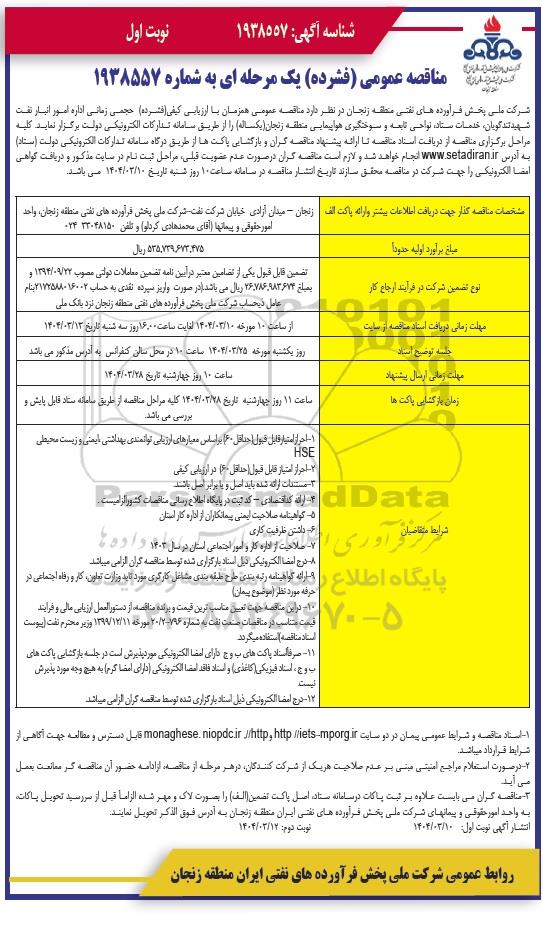 شناسه آگهی: ۱۹۳۸۵۵۷
نوبت اول
مناقصه عمومی (فشرده) یک مرحله ای به شماره ۱۹۳۸۵۵۷
شرکت ملی پخش فرآورده های نفتی منطقه زنجان در نظر دارد مناقصه عمومی همزمان با ارزیابی کیفی(فشرده) حجمی زمانی اداره امور انبار نفت
شهیدتندگویان، خدمات ستاد، نواحی تابعه و سوختگیری هواپیمایی منطقه زنجان(یکساله) را از طریق سامانه تدارکات الکترونیکی دولت برگزار نماید. کلیه
مراحل برگزاری مناقصه از دریافت اسناد مناقصه تا ارائه پیشنهاد مناقصه گران و بازگشایی پاکت ها از طریق درگاه سامانه تدارکات الکترونیکی دولت (ستاد)
به آدرس www.setadiran.ir انجام خواهد شد و لازم است مناقصه گران درصورت عدم عضویت قبلی، مراحل ثبت نام در سایت مذکور و دریافت گواهی
امضا الکترونیکی را جهت شرکت در مناقصه محقق سازند تاریخ انتشار مناقصه در سامانه ساعت ۱۰ روز شنبه تاریخ ۱۴۰۴/۰۳/۱۰ می باشد.
مشخصات مناقصه گذار جهت دریافت اطلاعات بیشتر وارائه پاکت الف
زنجان – میدان آزادی خیابان شرکت نفت-شرکت ملی پخش فرآورده های نفتی منطقه زنجان، واحد
امورحقوقی و پیمانها (آقای محمدهادی کردلو) و تلفن ۳۳۰۴۸۱۵۰ ۰۲۴
مبلغ برآورد اولیه حدوداً
۵۳۵,۷۳۹,۶۷۳,۴۷۵ ریال
نوع تضمین شرکت در فرآیند ارجاع کار
تضمین قابل قبول یکی از تضامین معتبر درآیین نامه تضمین معاملات دولتی مصوب ۱۳۹۴/۰۹/۲۲ و
بمبلغ ۲۶,۷۸۶,۹۸۳,۶۷۴ ریال می باشد.(در صورت واریز سپرده نقدی به حساب ۲۱۷۲۵۸۸۰۱۶۰۰۲بنام
عامل ذیحساب شرکت ملی پخش فرآورده های نفتی منطقه زنجان نزد بانک ملی
مهلت زمانی دریافت اسناد مناقصه از سایت
از ساعت ۱۰ مورخه ۱۴۰۴/۰۳/۱۰ لغایت ساعت۱۶,۰۰روز سه شنبه تاریخ ۱۴۰۴/۰۳/۱۳
جلسه توضیح اسناد
روز یکشنبه مورخه ۱۴۰۴/۰۳/۲۵ ساعت ۱۰ در محل سالن کنفرانس به آدرس مذکور می باشد
مهلت زمانی ارسال پیشنهاد
ساعت ۱۰ روز چهارشنبه تاریخ ۱۴۰۴/۰۳/۲۸
زمان بازگشایی پاکت ها
ساعت ۱۱ روز چهارشنبه تاریخ ۱۴۰۴/۰۳/۲۸ کلیه مراحل مناقصه از طریق سامانه ستاد قابل پایش و
بررسی می باشد.
شرایط متقاضیان
۱-احرازامتیازقابل قبول(حداقل۶۰) براساس معیارهای ارزیابی توانمندی بهداشتی ،ایمنی و زیست محیطی
HSE
۲-احراز امتیاز قابل قبول(حداقل۶۰) در ارزیابی کیفی
۳-مستندات ارائه شده باید اصل و یا برابر اصل باشند
۴- ارائه کداقتصادی – کد ثبت در پایگاه اطلاع رسانی مناقصات کشورالزامیست .
۵- گواهینامه صلاحیت ایمنی پیمانکاران از اداره کار استان
۶- داشتن ظرفیت کاری
۷- صلاحیت از اداره کار و امور اجتماعی استان در سال ۱۴۰۳
۸-درج امضا الکترونیکی ذیل اسناد بارگزاری شده توسط مناقصه گران الزامی میباشد
۹-ارائه گواهینامه رتبه بندی طرح طبقه بندی مشاغل کارگری مورد تایید وزارت تعاون، کار و رفاه اجتماعی در
حرفه مورد نظر(موضوع پیمان)
۱۰- دراین مناقصه جهت تعیین مناسب ترین قیمت و برنده مناقصه، از دستورالعمل ارزیابی مالی و فرایند
قیمت متناسب در مناقصات صنعت نفت به شماره ۷۹۶-۲۰/۲ مورخه ۱۳۹۹/۱۲/۱۱ وزیر محترم نفت (پیوست
اسناد مناقصه) استفاده میگردد.
۱۱- صرفاًاسناد پاکت های ب و ج دارای امضا الکترونیکی موردپذیرش است در جلسه بازگشایی پاکت های
ب و ج ، اسناد فیزیکی(کاغذی) و اسناد فاقد امضا الکترونیکی (دارای امضا گرم) به هیچ وجه مورد پذیرش
نیست.
۱۲-درج امضا الکترونیکی ذیل اسناد بارگزاری شده توسط مناقصه گران الزامی میباشد.
۱-اسناد مناقصه و شرایط عمومی پیمان در دو سایت http //iets-mporg.ir وhttp//, monaghese. niopdc.ir قابل دسترس و مطالعه جهت آگاهی از
شرایط قرارداد میباشد.
۲-درصورت استعلام مراجع امنیتی مبنی بر عدم صلاحیت هریک از شرکت کنندگان، درهر مرحله از مناقصه، ازادامه حضور آن مناقصه گر ممانعت بعمل
می آید.
۳-مناقصه گران می بایست علاوه بر ثبت پاکات درسامانه ستاد، اصل پاکت تضمین(الف) را بصورت لاک و مهر شده الزاماً قبل از سررسید تحویل پاکات،
به واحد امورحقوقی و پیمانهای شرکت ملی پخش فرآورده های نفتی ایران منطقه زنجان به آدرس فوق الذکر تحویل نمایند.
انتشار آگهی نوبت اول: ۱۴۰۴/۰۳/۱۰ نوبت دوم: ۱۴۰۴/۰۳/۱۲
روابط عمومی شرکت ملی پخش فرآورده های نفتی ایران منطقه زنجان